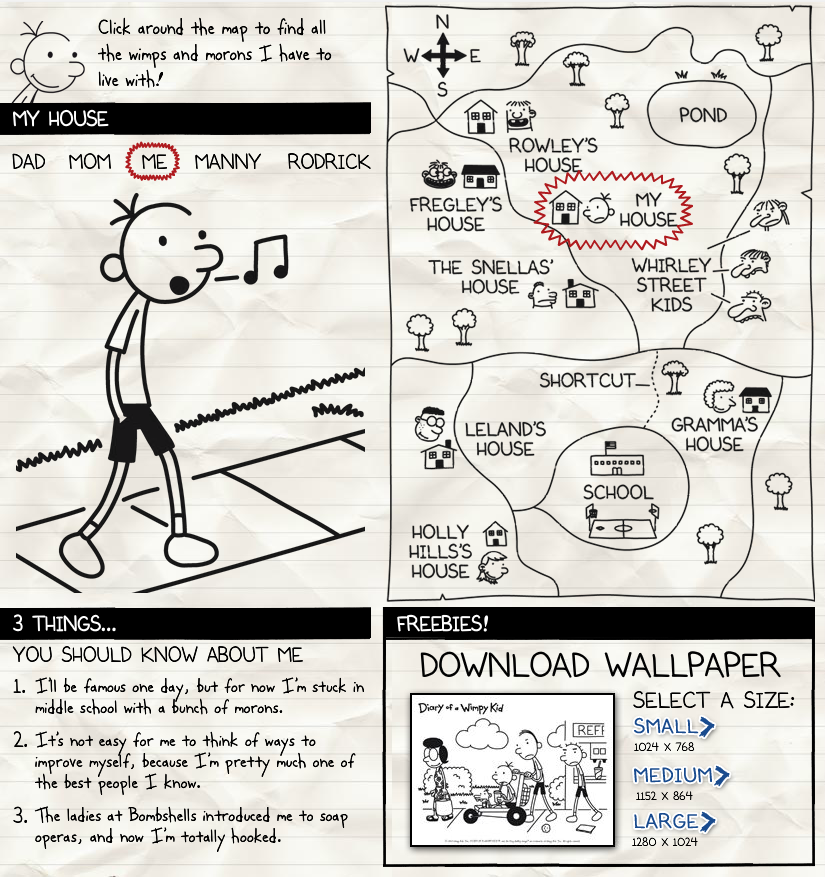 Click around the map to find all
the wimps and morons I have to
live with!
MY HOUSE
DAD MOM ME MANNY RODRICK
N
W E
S
POND
ROWLEY'S
HOUSE
FREGLEY'S
HOUSE
MY
HOUSE
THE SNELLAS'
HOUSE
WHIRLEY
STREET
KIDS
SHORTCUT
GRAMMA'S
HOUSE
LELAND'S
HOUSE
SCHOOL
HOLLY
HILLS'S
HOUSE
3 THINGS...
YOU SHOULD KNOW ABOUT ME
1. I'll be famous one day, but for now I'm stuck in
middle school with a bunch of morons.
2. It's not easy for me to think of ways to
improve myself, because I'm pretty much one of
the best people I know.
3. The ladies at Bombshells introduced me to soap
operas, and now I'm totally hooked.
FREEBIES!
DOWNLOAD WALLPAPER
Diary of a Wimpy Kid
REFR
SELECT A SIZE:
SMALL
1024 X 768
MEDIUM
1152 X 864
LARGE
1280 X 1024